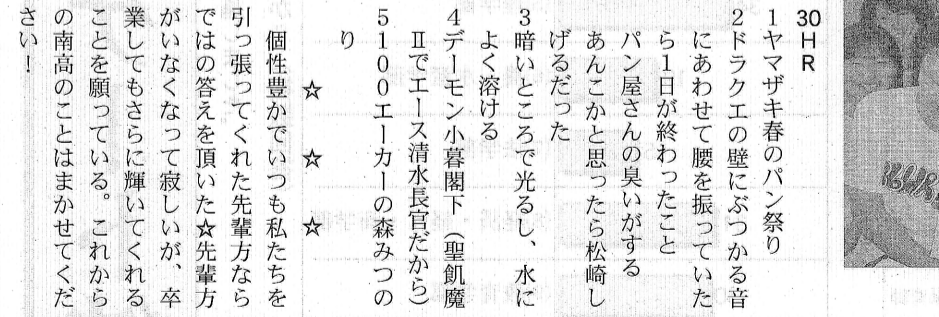 30HR
1ヤマザキ春のパン祭り
2ドラクエの壁にぶつかる音
にあわせて腰を振っていた
ら1日が終わったこと
パン屋さんの臭いがする
あんこかと思ったら松崎し
げるだった
3暗いところで光るし、水に
よく溶ける
4デーモン小暮閣下(聖飢魔
Ⅱでエース清水長官だから)
5100エーカーの森みつの
り
☆ ☆ ☆
個性豊かでいつも私たちを
引っ張ってくれた先輩方なら
ではの答えを頂いた☆先輩方
がいなくなって寂しいが、卒
業してもさらに輝いてくれる
ことを願っている。これから
の南高のことはまかせてくだ
さい!